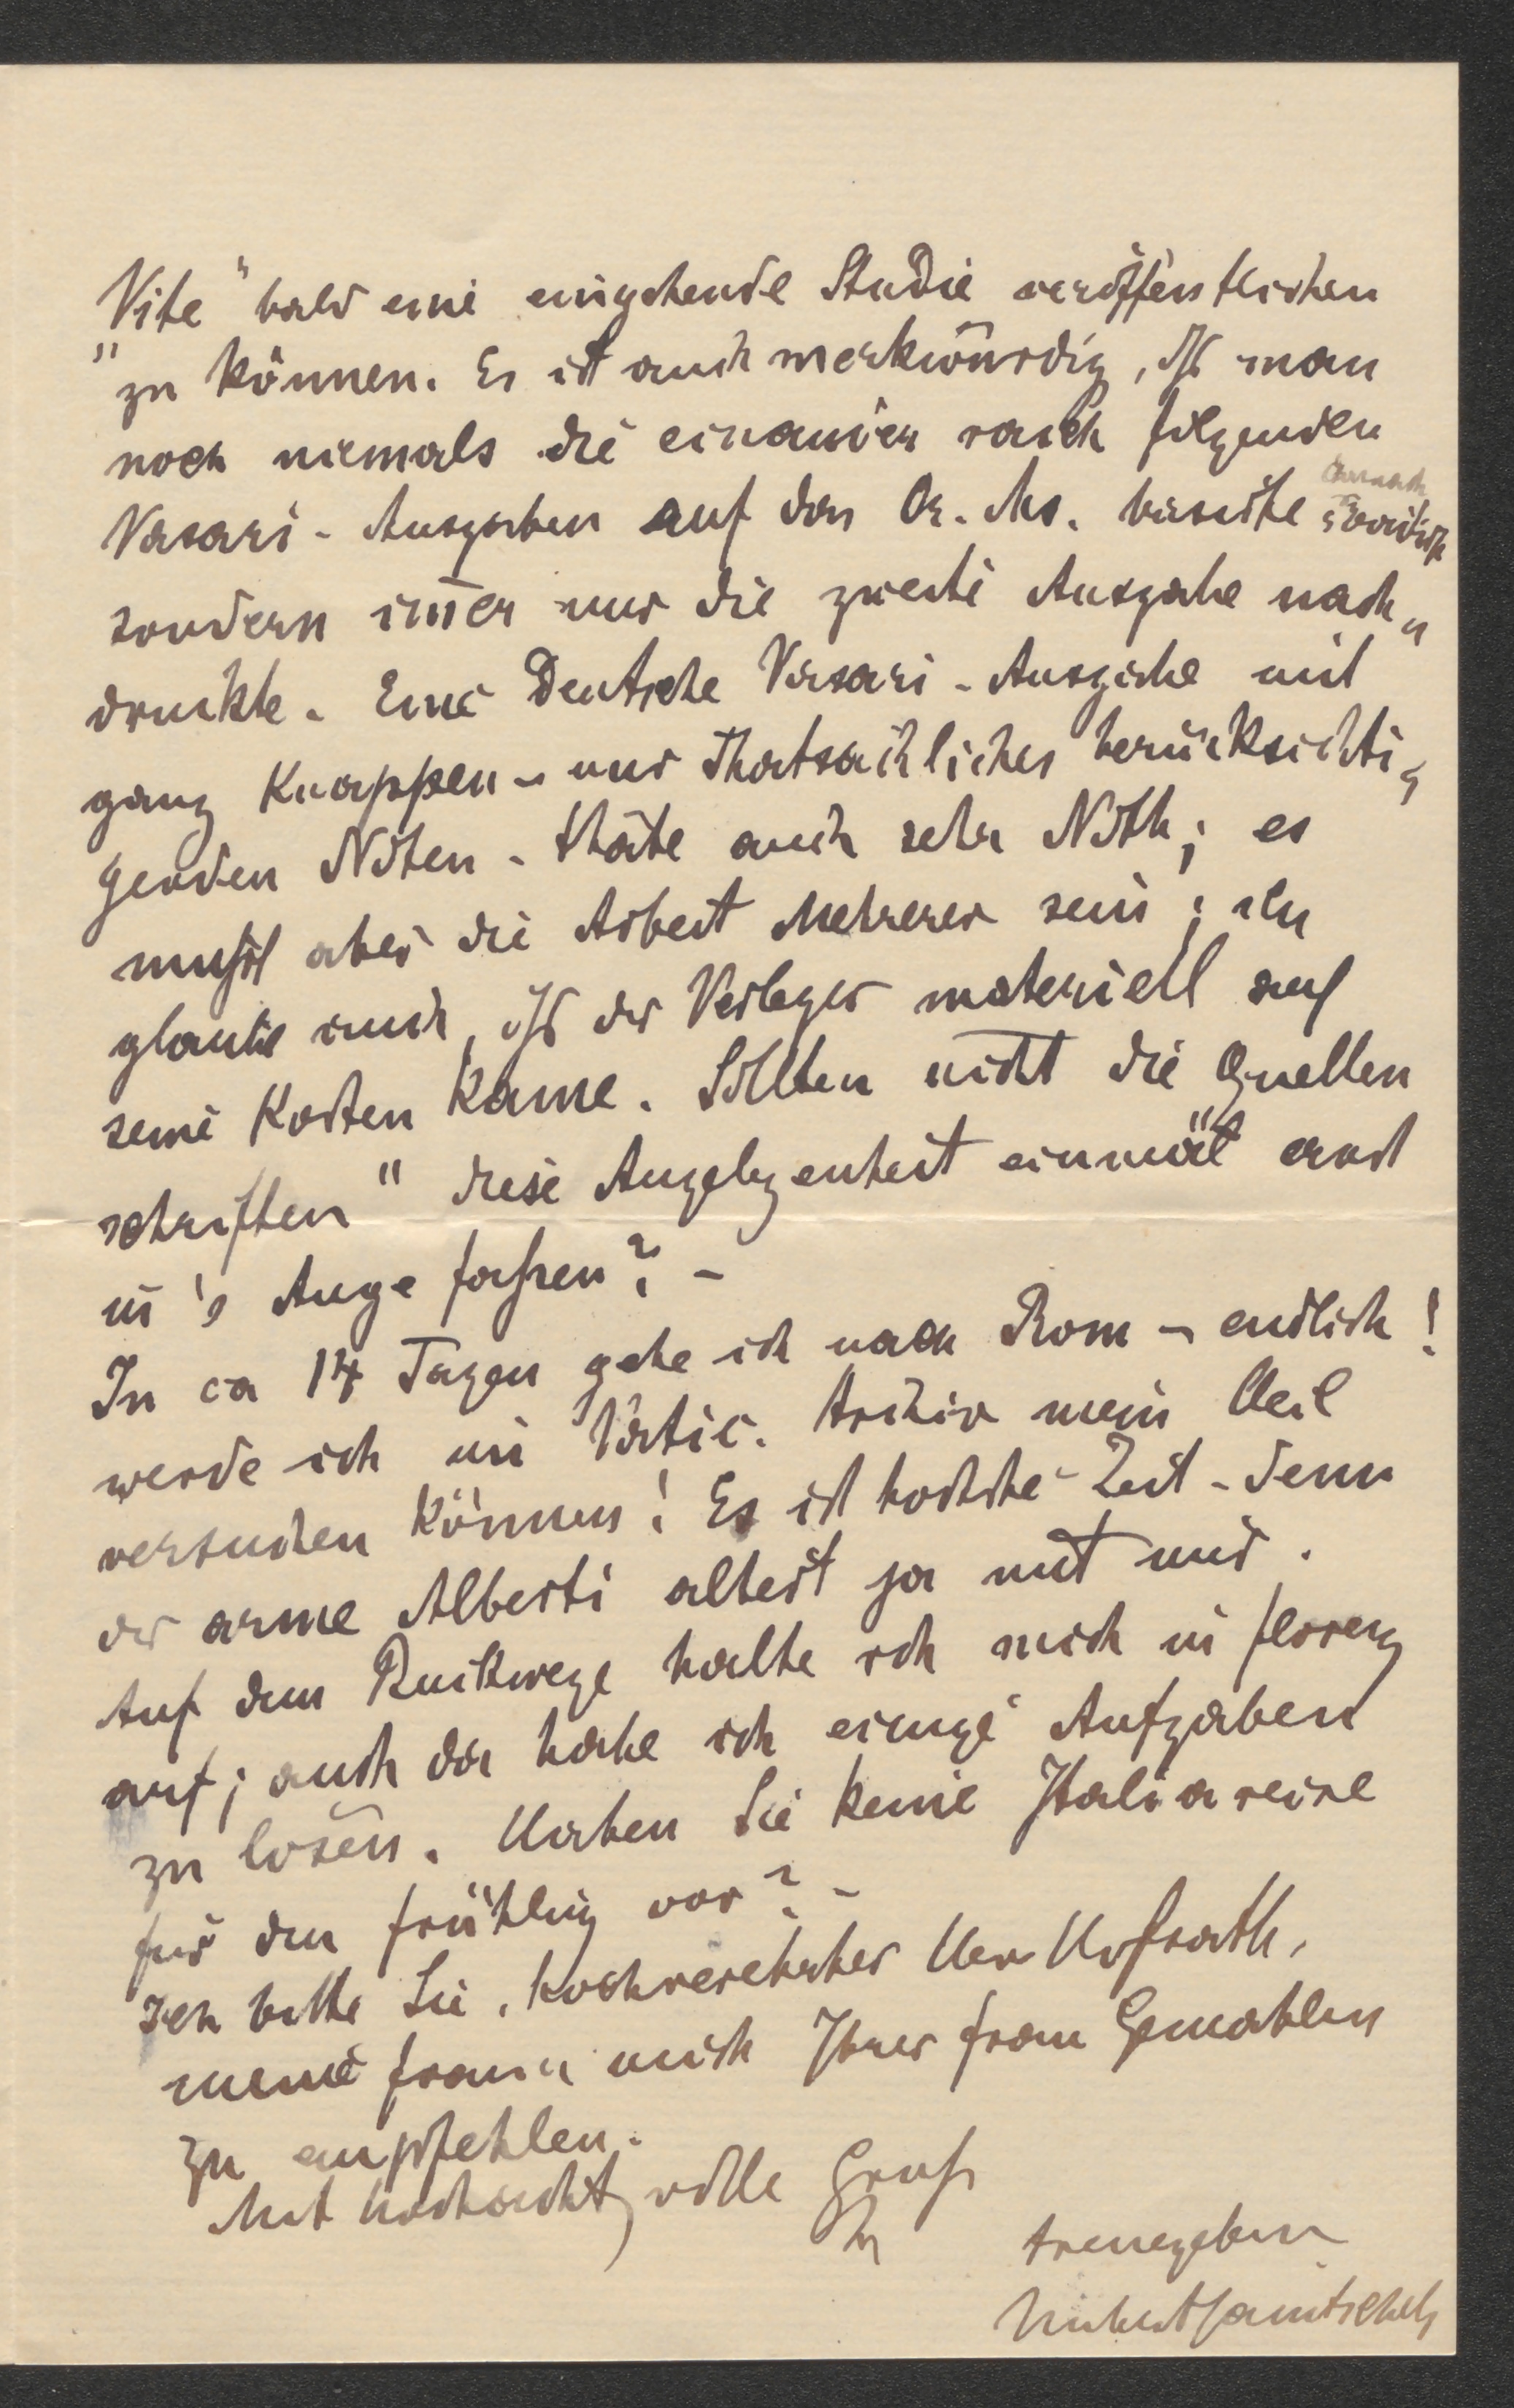 „Vite“ bald eine eingehende Studie veröffentlichen
zu können. Es ist auch merkwürdig, dß man
noch niemals die einander rasch folgenden
Vasari-Ausgaben auf das Or. Ms. basirte
sondern im̅er nur die zweite Ausgabe nach„
druckte. Eine Deutsche Vasari-Ausgabe mit
ganz Knappen – nur Thatsächliches berücksichti„
genden Noten – thäte auch sehr Noth; es
mußt aber die Arbeit Mehrerer sein; ich
glaube auch, dß der Verleger materiell auf
seine Kosten käme. Sollten nicht die „Quellen
schriften“ diese Angelegenheit einmal ernst
in's Auge faßen? –
In ca 14 Tagen gehe ich nach Rom – endlich!
werde ich im Vatic. Archiv mein Heil
versuchen können! Es ist höchste Zeit – denn
der arme Alberti altert ja mit mir.
Auf dem Rückwege halte ich mich in Florenz
auf; auch da habe ich einige Aufgaben
zu lösen. Haben Sie keine Italiareise
für den Frühling vor? –
Ich bitte Sie, hochverehrter Herr Hofrath,
meine Frau u mich Ihrer Frau Gemahlin
zu empfehlen.
Mit hochachtgvolle Gruß
Ihr treuergebener
Hubert Janitschek